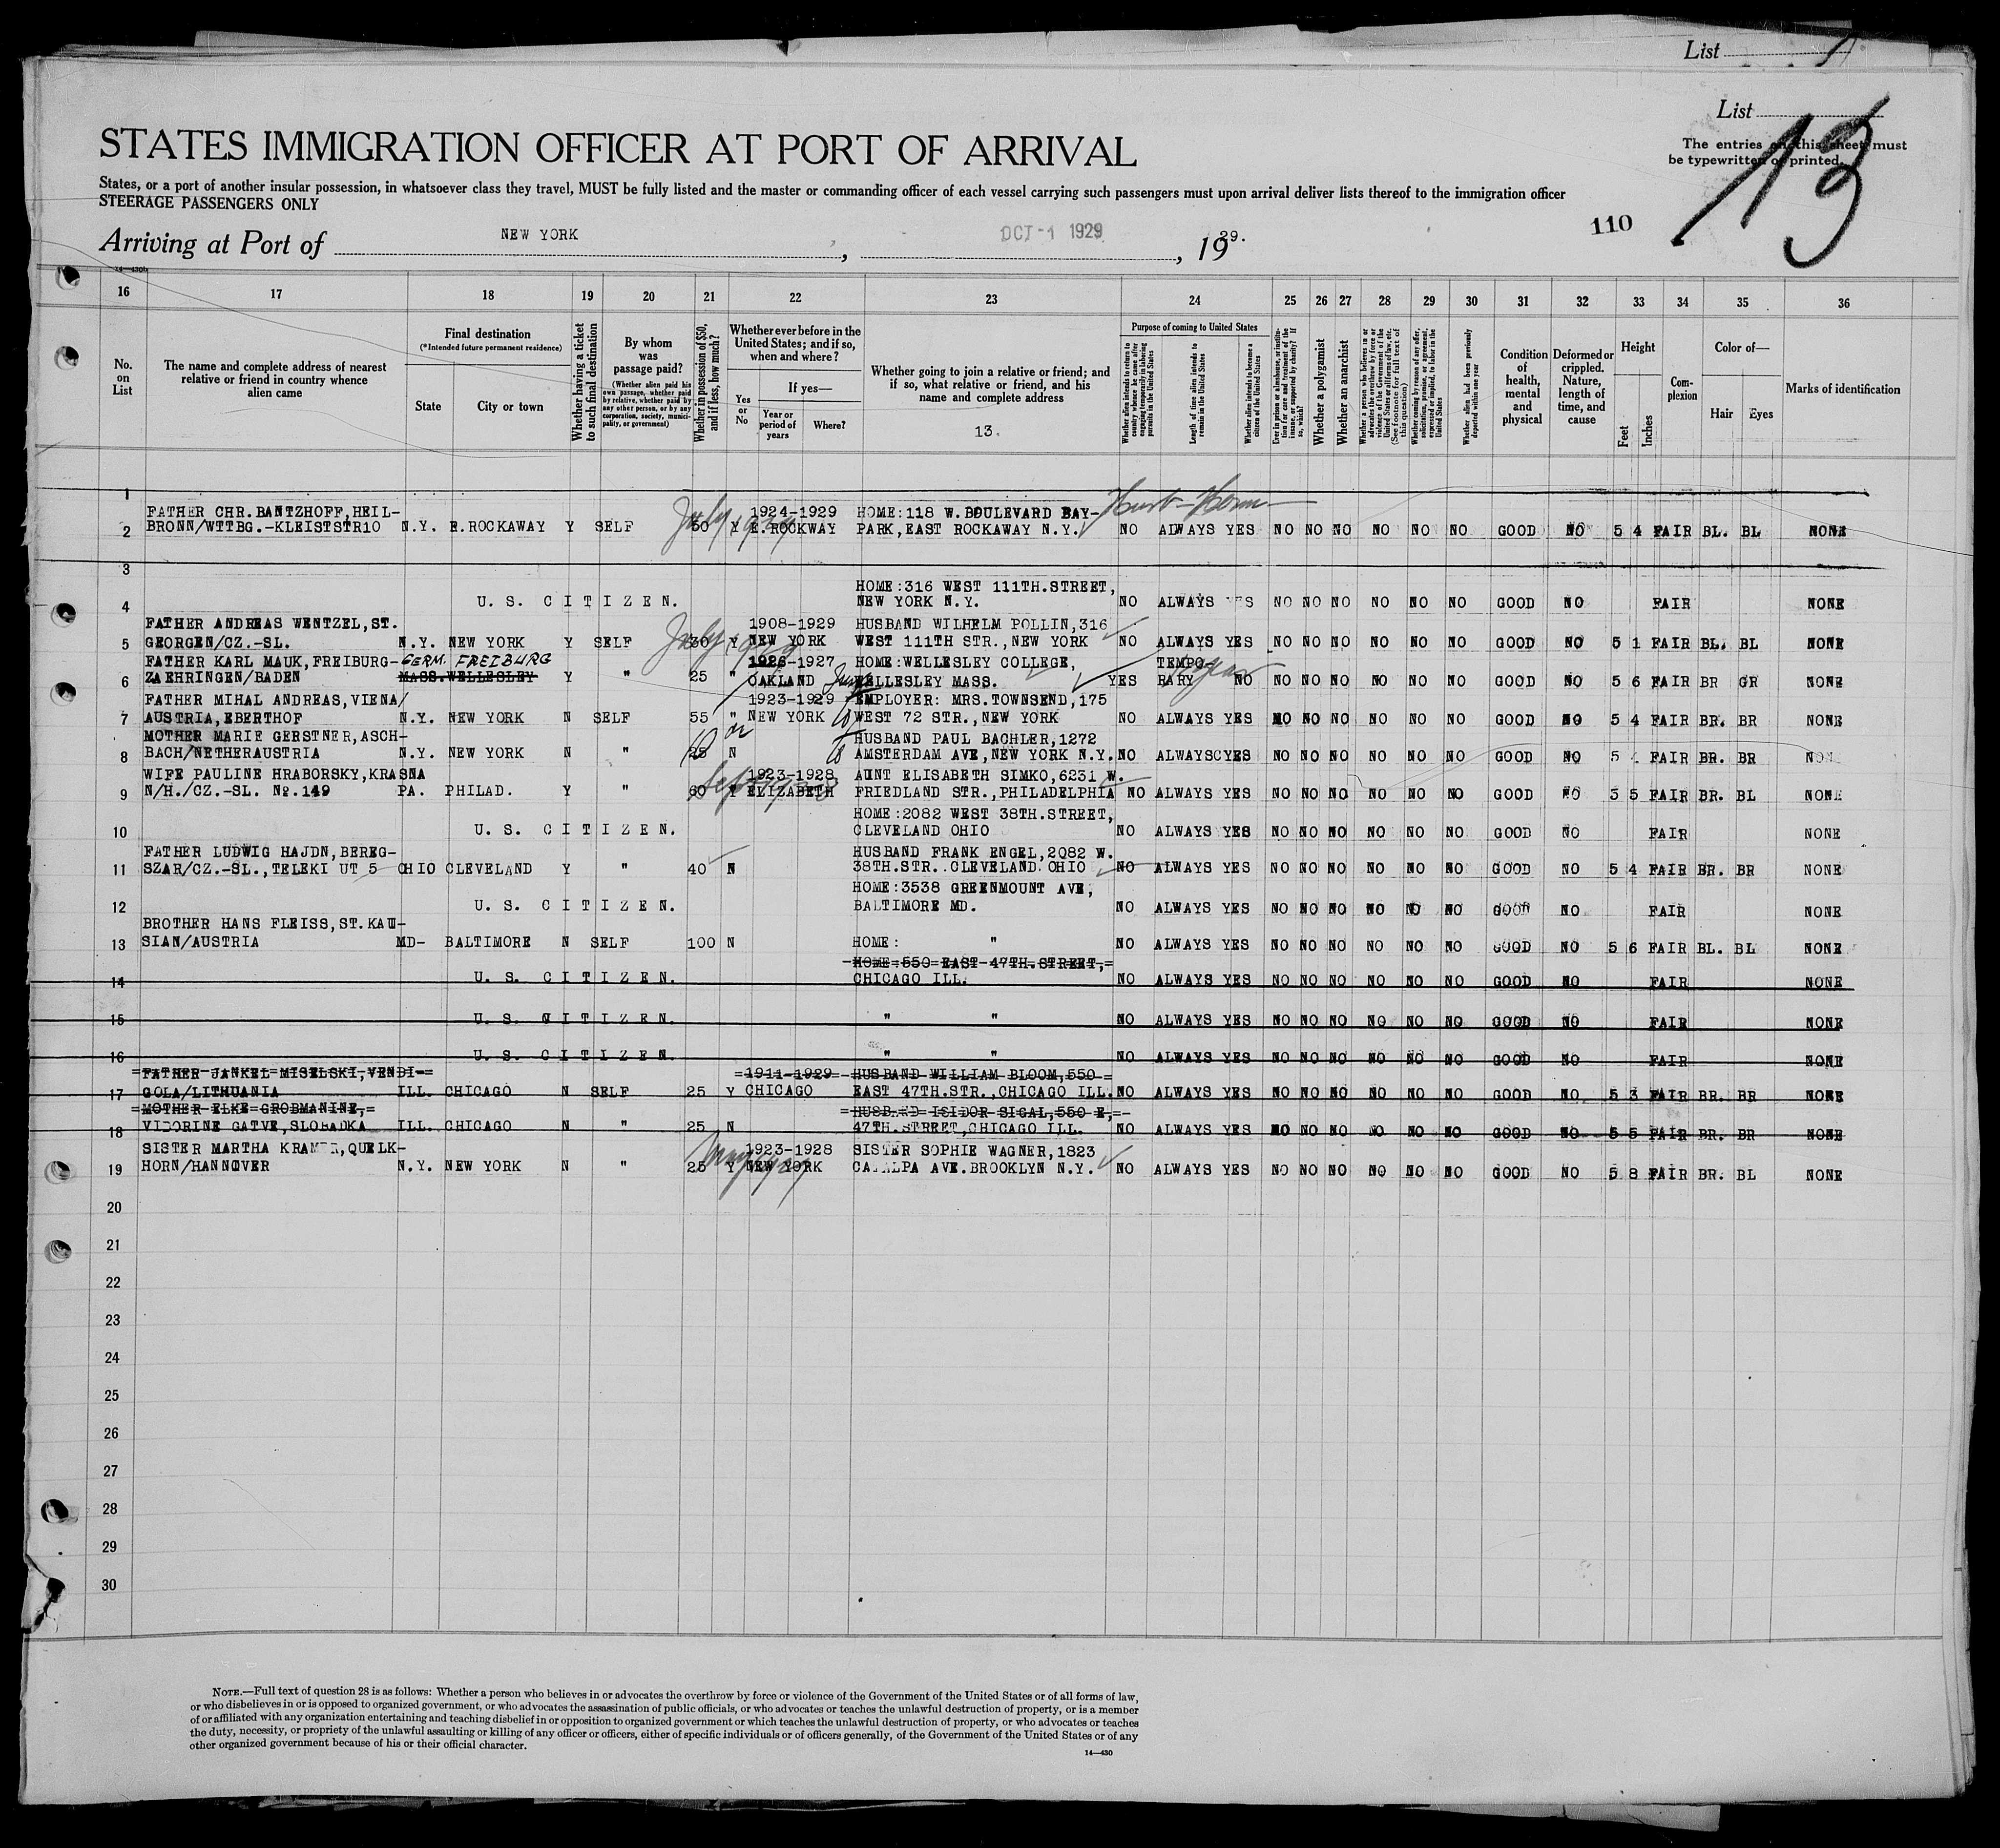 List
List
13
The entries on this sheet must
be typewritten or printed.
STATES IMMIGRATION OFFICER AT PORT OF ARRIVAL
States, or a port of another insular possession, in whatsoever class they travel, MUST be fully listed and the master or commanding officer of each vessel carrying such passengers must upon arrival deliver lists thereof to the immigration officer
STEERAGE PASSENGERS ONLY
110
Arriving at Port of NEW YORK, OCT -1 1929, 1929.
14—430b
16 17 18 19 20 21 22 23 24 25 26 27 28 29 30 31 32 33 34 35 36
No. on List
The name and complete address of nearest
relative or friend in country whence
alien came
Final destination
(*Intended future permanent residence)
State
City or town
Whether having a ticket
to such final destination
By whom
was
passage paid?
(Whether alien paid his
own passage, whether paid
by relative, whether paid by
any other person, or by any
corporation, society, munici-
pality, or government)
Whether in possession of $50,
and if less, how much?
Whether ever before in the
United States; and if so,
when and where?
Yes
or
No
If yes—
Year or
period of
years
Where?
Whether going to join a relative or friend; and
if so, what relative or friend, and his
name and complete address
13.
Purpose of coming to United States
Whether alien intends to return to
country whence he came after
engaging temporarily in laboring
pursuits in the United States
Length of time alien intends to
remain in the United States
Whether alien intends to become a
citizen of the United States
Ever in prison or almshouse, or institu-
tion for care and treatment of the
insane, or supported by charity? If
so, which?
Whether a polygamist
Whether an anarchist
Whether a person who believes in or
advocates the overthrow by force or
violence of the Government of the
United States or all forms of law, etc.
(See footnote for full text of
this question)
Whether coming by reason of any offer,
solicitation, promise, or agreement,
expressed or implied, to labor in the
United States
Whether alien had been previously
deported within one year
Condition
of
health,
mental
and
physical
Deformed or
crippled.
Nature,
length of
time, and
cause
Height
Feet
Inches
Com-
plexion
Color of—
Hair
Eyes
Marks of identification
1
FATHER CHR.BANTZHOFF,HEIL- 1924-1929 HOME:118 W.BOULEVARD BAY-
2 BRONN/WTTBG.-KLEISTSTR10 N.Y. E.ROCKAWAY Y SELF 60 Y E.ROCKWAY PARK,EAST ROCKAWAY N.Y. NO ALWAYS YES NO NO NO NO NO NO GOOD NO 5 4 FAIR BL. BL NONE
July 1929
3
HOME:316 WEST 111TH.STREET,
4 U. S. C I T I Z E N. NEW YORK N.Y. NO ALWAYS YES NO NO NO NO NO NO GOOD NO FAIR NONE
FATHER ANDREAS WENTZEL,ST. 1908-1929 HUSBAND WILHELM POLLIN,316
5 GEORGEN/CZ.-SL. N.Y. NEW YORK Y SELF 30 Y NEW YORK WEST 111TH STR.,NEW YORK NO ALWAYS YES NO NO NO NO NO NO GOOD NO 5 1 FAIR BL. BL NONE
July 1929
FATHER KARL MAUK,FREIBURG- GERM. FREIBURG 1926-1927 HOME:WELLESLEY COLLEGE, TEMPO-
6 ZAEHRINGEN/BADEN MASS.WELLESLEY Y " 25 " OAKLAND WELLESLEY MASS. YES RARY NO NO NO NO NO NO NO GOOD NO 5 6 FAIR BR GR NONE
FATHER MIHAL ANDREAS,VIENA/ 1923-1929 EMPLOYER: MRS.TOWNSEND,175
7 AUSTRIA,EBERTHOF N.Y. NEW YORK N SELF 55 " NEW YORK WEST 72 STR.,NEW YORK NO ALWAYS YES NO NO NO NO NO NO GOOD NO 5 4 FAIR BR. BR NONE
MOTHER MARIE GERSTNER,ASCH- HUSBAND PAUL BACHLER,1272
8 BACH/NETHERAUSTRIA N.Y. NEW YORK N " 25 N AMSTERDAM AVE,NEW YORK N.Y. NO ALWAYSCYES NO NO NO NO NO NO GOOD NO 5 FAIR BR. BR NONE
WIFE PAULINE HRABORSKY,KRASNA 1923-1928 AUNT ELISABETH SIMKO,6231 W.
9 N/H./CZ.-SL. No.149 PA. PHILAD. Y " 60 Y ELIZABETH FRIEDLAND STR.,PHILADELPHIA NO ALWAYS YES NO NO NO NO NO NO GOOD NO 3 5 FAIR BR. BL NONE
HOME:2082 WEST 38TH.STREET,
10 U. S. C I T I Z E N. CLEVELAND OHIO NO ALWAYS YES NO NO NO NO NO NO GOOD NO FAIR NONE
FATHER LUDWIG HAJDN,BEREG- HUSBAND FRANK ENGEL,2082 W.
11 SZAR/CZ.-SL.,TELEKI UT 5 OHIO CLEVELAND Y " 40 N 38TH.STR..CLEVELAND OHIO NO ALWAYS YES NO NO NO NO NO NO GOOD NO 5 4 FAIR BR. BR NONE
HOME:3538 GREENMOUNT AVE,
12 U. S. C I T I Z E N. BALTIMORE MD. NO ALWAYS YES NO NO NO NO NO NO GOOD NO FAIR NONE
BROTHER HANS FLEISS,ST.KAU-
13 SIAN/AUSTRIA MD- BALTIMORE N SELF 100 N HOME: " NO ALWAYS YES NO NO NO NO NO NO GOOD NO 5 6 FAIR BL. BL NONE
HOME=550=EAST-47TH.STREET,=
14 U. S. C I T I Z E N. CHICAGO ILL. NO ALWAYS YES NO NO NO NO NO NO GOOD NO FAIR NONE
15 U. S. C I T I Z E N. " " NO ALWAYS YES NO NO NO NO NO NO GOOD NO FAIR NONE
16 U. S. C I T I Z E N. " " NO ALWAYS YES NO NO NO NO NO NO GOOD NO FAIR NONE
FATHER JANKEL MISELSKI,VENDI- 1911-1929 HUSBAND WILLIAM BLOOM,550-
17 GOLA/LITHUANIA ILL. CHICAGO N SELF 25 Y CHICAGO EAST 47TH.STR.,CHICAGO ILL. NO ALWAYS YES NO NO NO NO NO NO GOOD NO 5 3 FAIR BR. BR NONE
MOTHER ELKE GROBMANINE, HUSBAND ISIDOR SIGAL,550 E,
18 VIDORINE GATVE,SLOBADKA ILL. CHICAGO N " 25 N 47TH.STREET,CHICAGO ILL. NO ALWAYS YES NO NO NO NO NO NO GOOD NO 5 5 FAIR BR. BR NONE
SISTER MARTHA KRAMER,QUELK- 1923-1928 SISTER SOPHIE WAGNER,1823
19 HORN/HANNOVER N.Y. NEW YORK N " 25 Y NEW YORK CATALPA AVE.BROOKLYN N.Y. NO ALWAYS YES NO NO NO NO NO NO GOOD NO 5 8 FAIR BR. BL NONE
20
21
22
23
24
25
26
27
28
29
30
NOTE.—Full text of question 28 is as follows: Whether a person who believes in or advocates the overthrow by force or violence of the Government of the United States or of all forms of law,
or who disbelieves in or is opposed to organized government, or who advocates the assassination of public officials, or who advocates or teaches the unlawful destruction of property, or is a member
of or affiliated with any organization entertaining and teaching disbelief in or opposition to organized government or which teaches the unlawful destruction of property, or who advocates or teaches
the duty, necessity, or propriety of the unlawful assaulting or killing of any officer or officers, either of specific individuals or of officers generally, of the Government of the United States or of any
other organized government because of his or their official character.
14—430